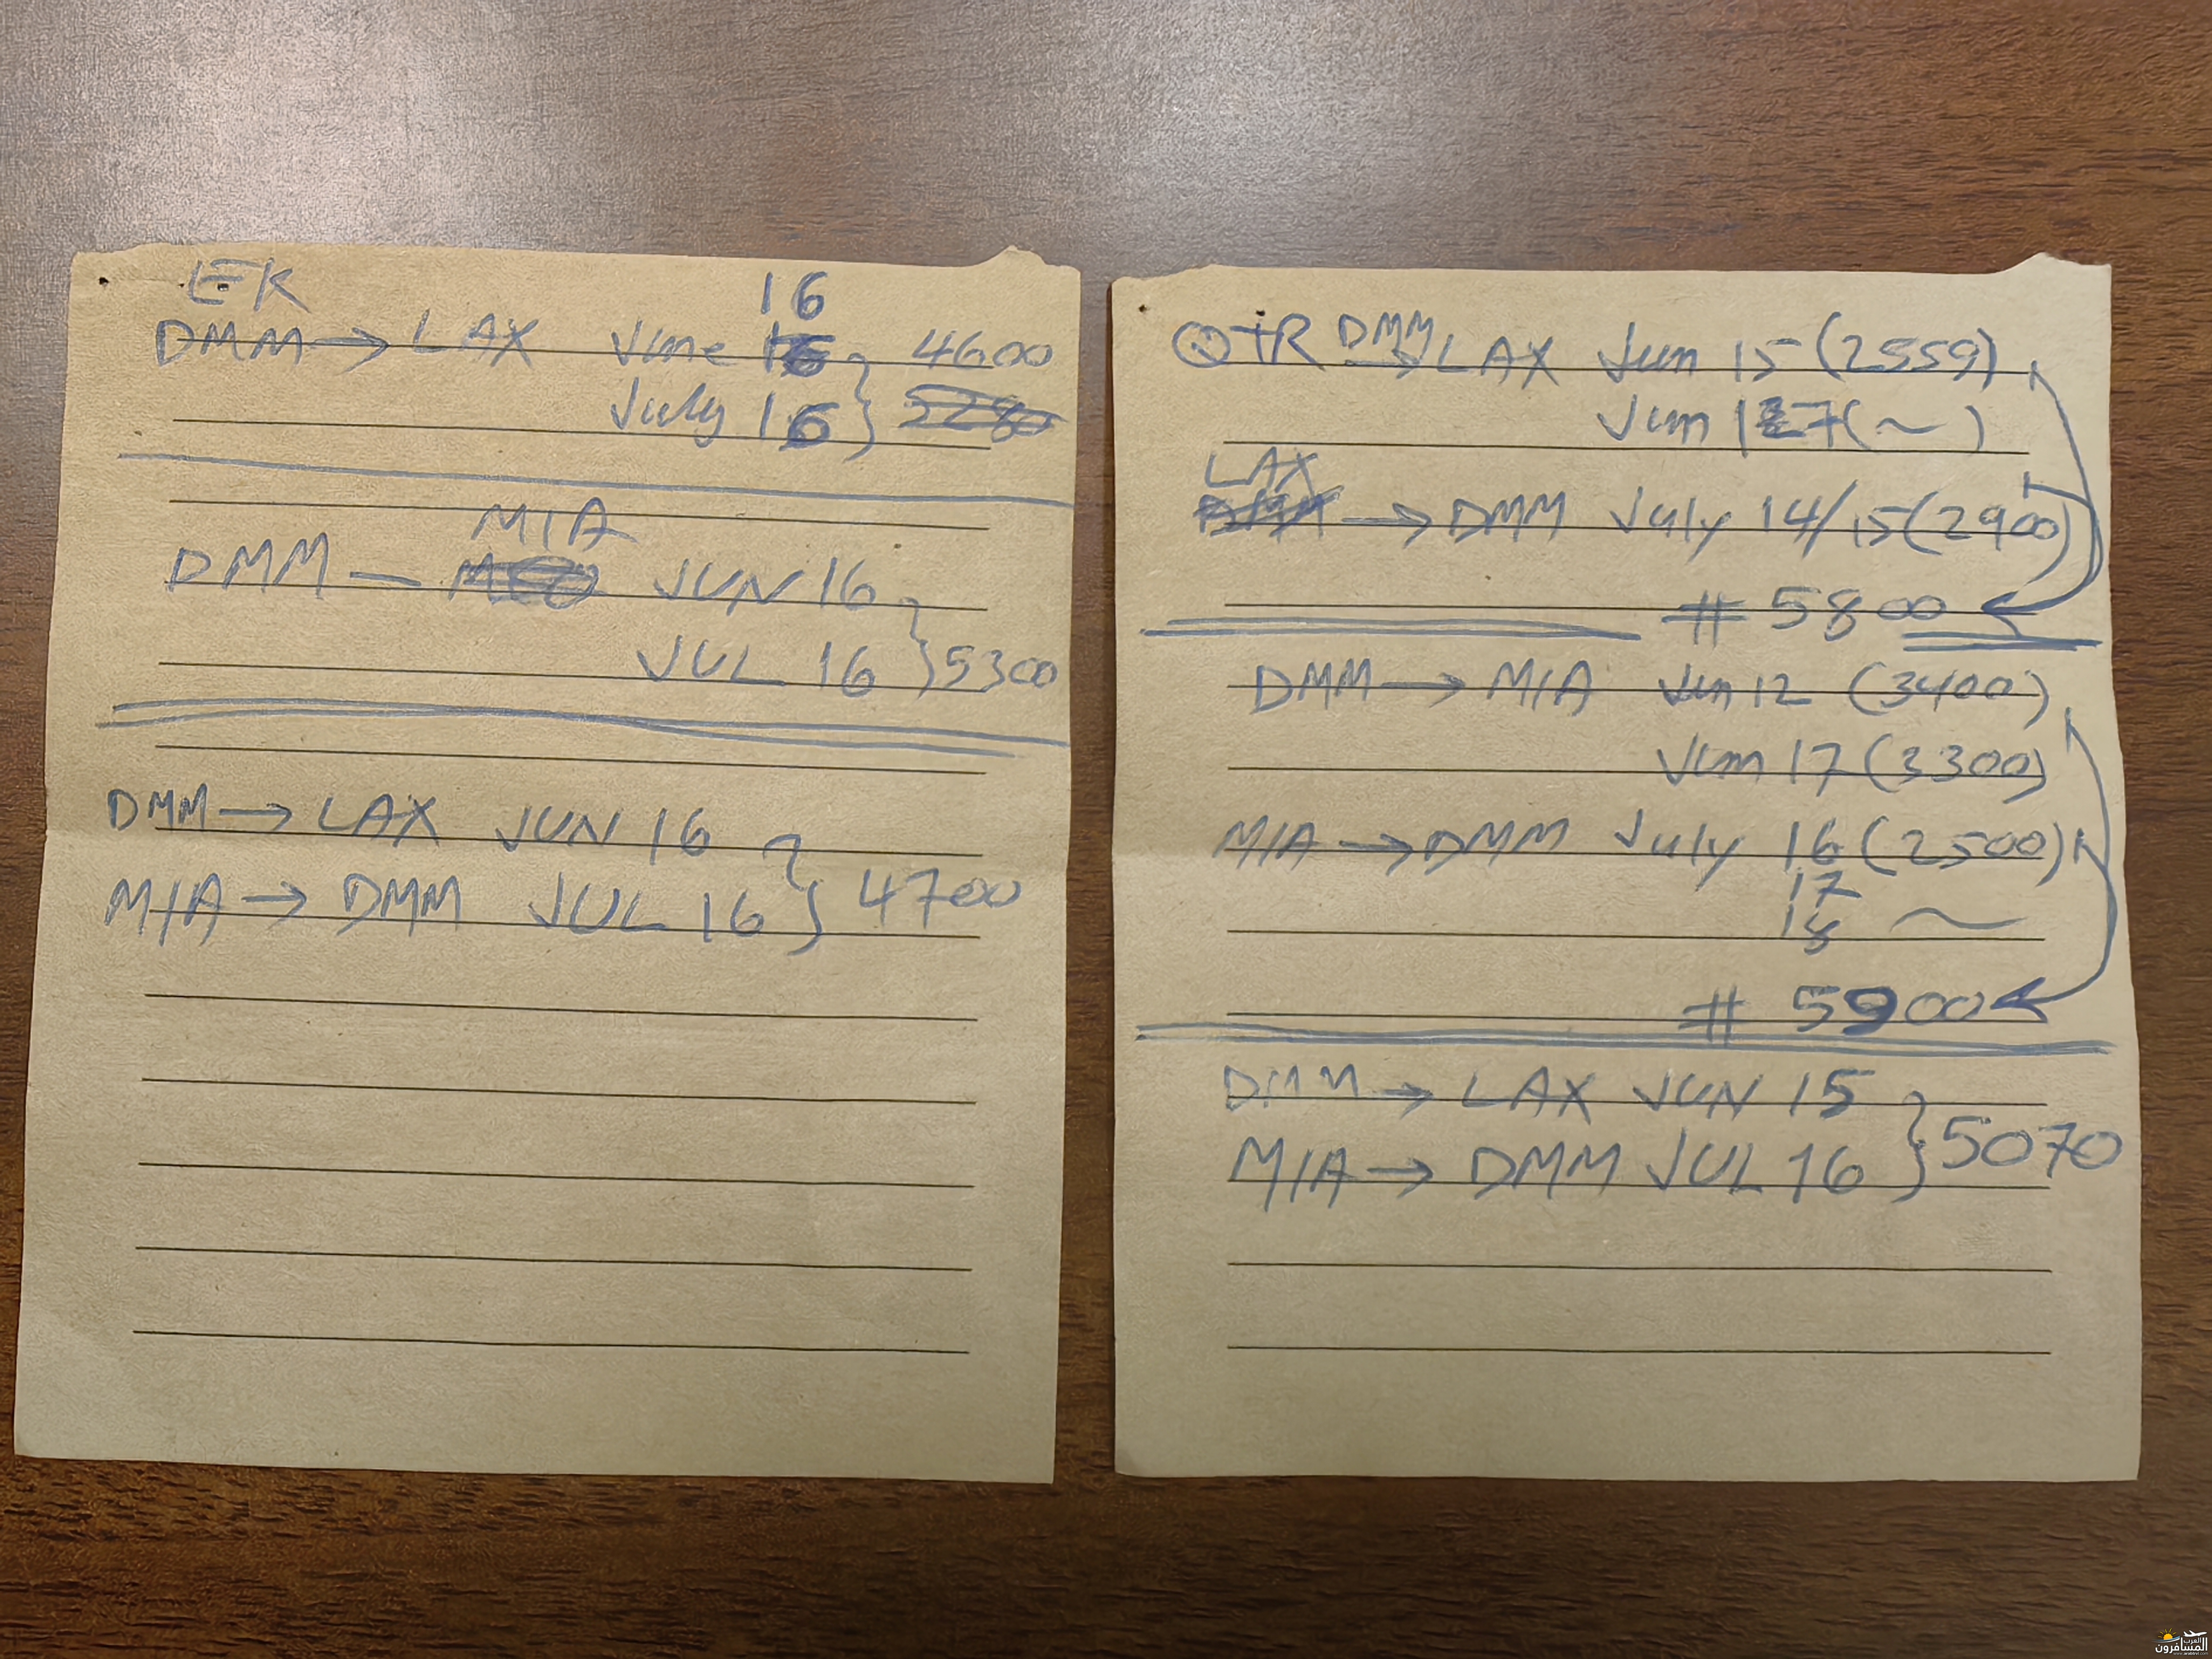 EK
16
DMM → LAX June 16 } 4600
July 16 } 5280
MIA
DMM — JUN 16
JUL 16 } 5300
DMM → LAX JUN 16
MIA → DMM JUL 16 } 4700
QTR DMM → LAX Jun 15 (2559)
Jun 17 (~)
LAX
DMM → DMM July 14/15 (2900)
# 5800
DMM → MIA Jun 12 (3400)
Jun 17 (3300)
MIA → DMM July 16 (2500)
17
18 ~
# 5900
DMM → LAX JUN 15
MIA → DMM JUL 16 } 5070
المسافرون العرب